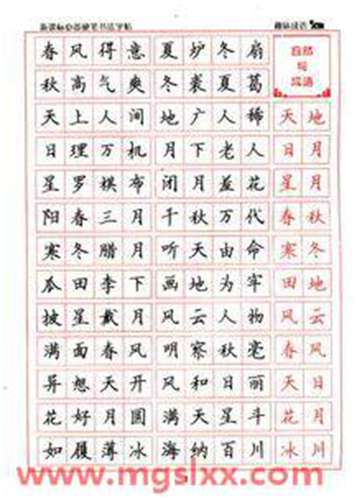 新课标必备硬笔书法字帖 趣味成语
春风得意 夏炉冬扇
自然
与
成语
秋高气爽 冬裘夏葛
天上人间 地广人稀 天地
日理万机 月下老人 日月
星罗棋布 闭月羞花 星月
阳春三月 千秋万代 春秋
寒冬腊月 听天由命 寒冬
瓜田李下 画地为牢 田地
披星戴月 风云人物 风云
满面春风 明察秋毫 春风
异想天开 风和日丽 天日
花好月圆 满天星斗 花月
如履薄冰 海纳百川 冰川
www.mgslxx.com